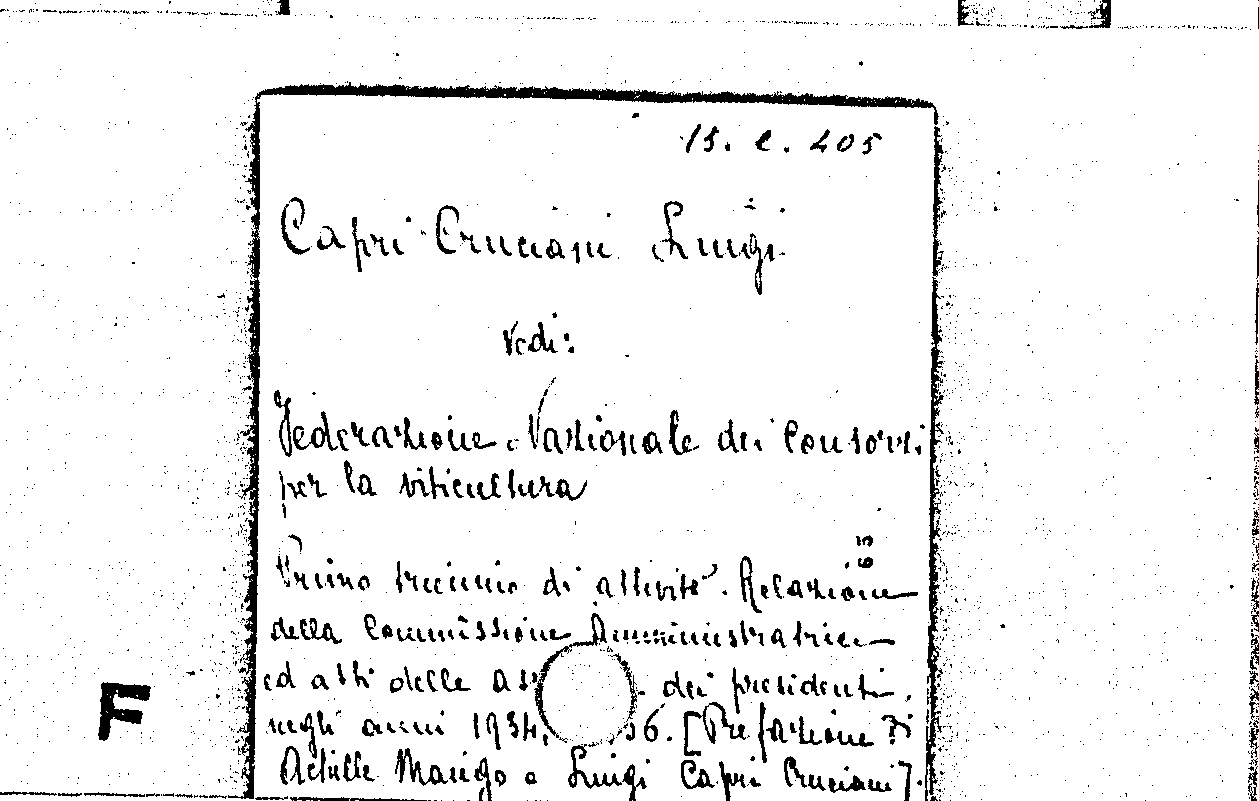 15. C. 205
Capri Cruciani Luigi
Vedi:
Federazione Nazionale dei Consorzi
per la viticultura
63
Primo triennio di attività. Relazione
della Commissione Amministratrice
ed atti delle as . dei presidenti,
negli anni 1934, 36. [Prefazione di
Achille Marigo e Luigi Capri Cruciani].
F